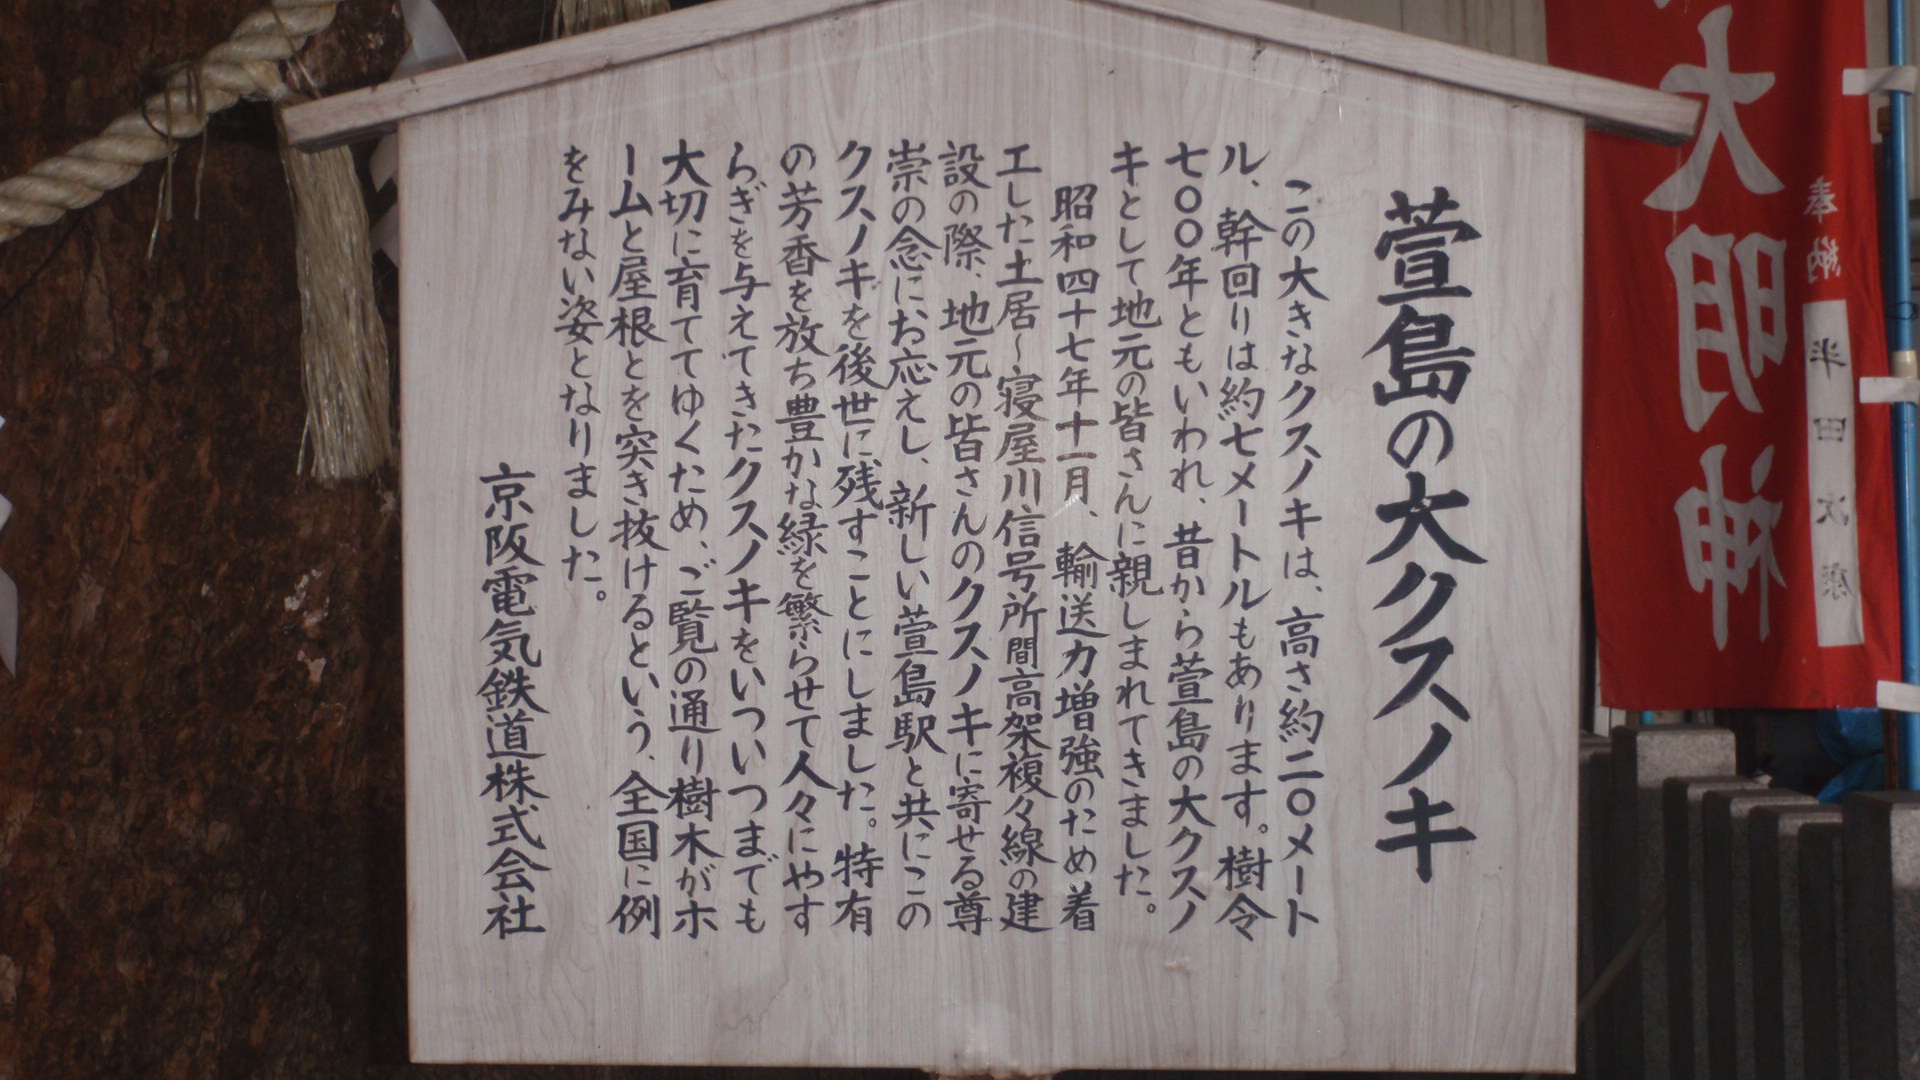 萱島の大クスノキ
このおおきなクスノキは、高さ約二〇メート
ル、幹回りは約七メートルもあります。樹令
七〇〇年ともいわれ、昔から萱島の大クスノ
キとして地元の皆さんに親しまれてきました。
昭和四十七年十一月、輸送力増強のため着
工した土居〜寝屋川信号所間高架複々線の建
設の際、地元の皆さんのクスノキに寄せる尊
崇の念にお応えし、新しい萱島駅と共にこの
クスノキを後世に残すことにしました。特有
の芳香を放ち豊かな緑を繁らせて人々にやす
らぎを与えてきたクスノキをいついつまでも
大切に育ててゆくため、ご覧の通り樹木がホ
ームと屋根とを突き抜けるという、全国に例
をみない姿となりました。
京阪電気鉄道株式会社
大明神
奉納
半田次